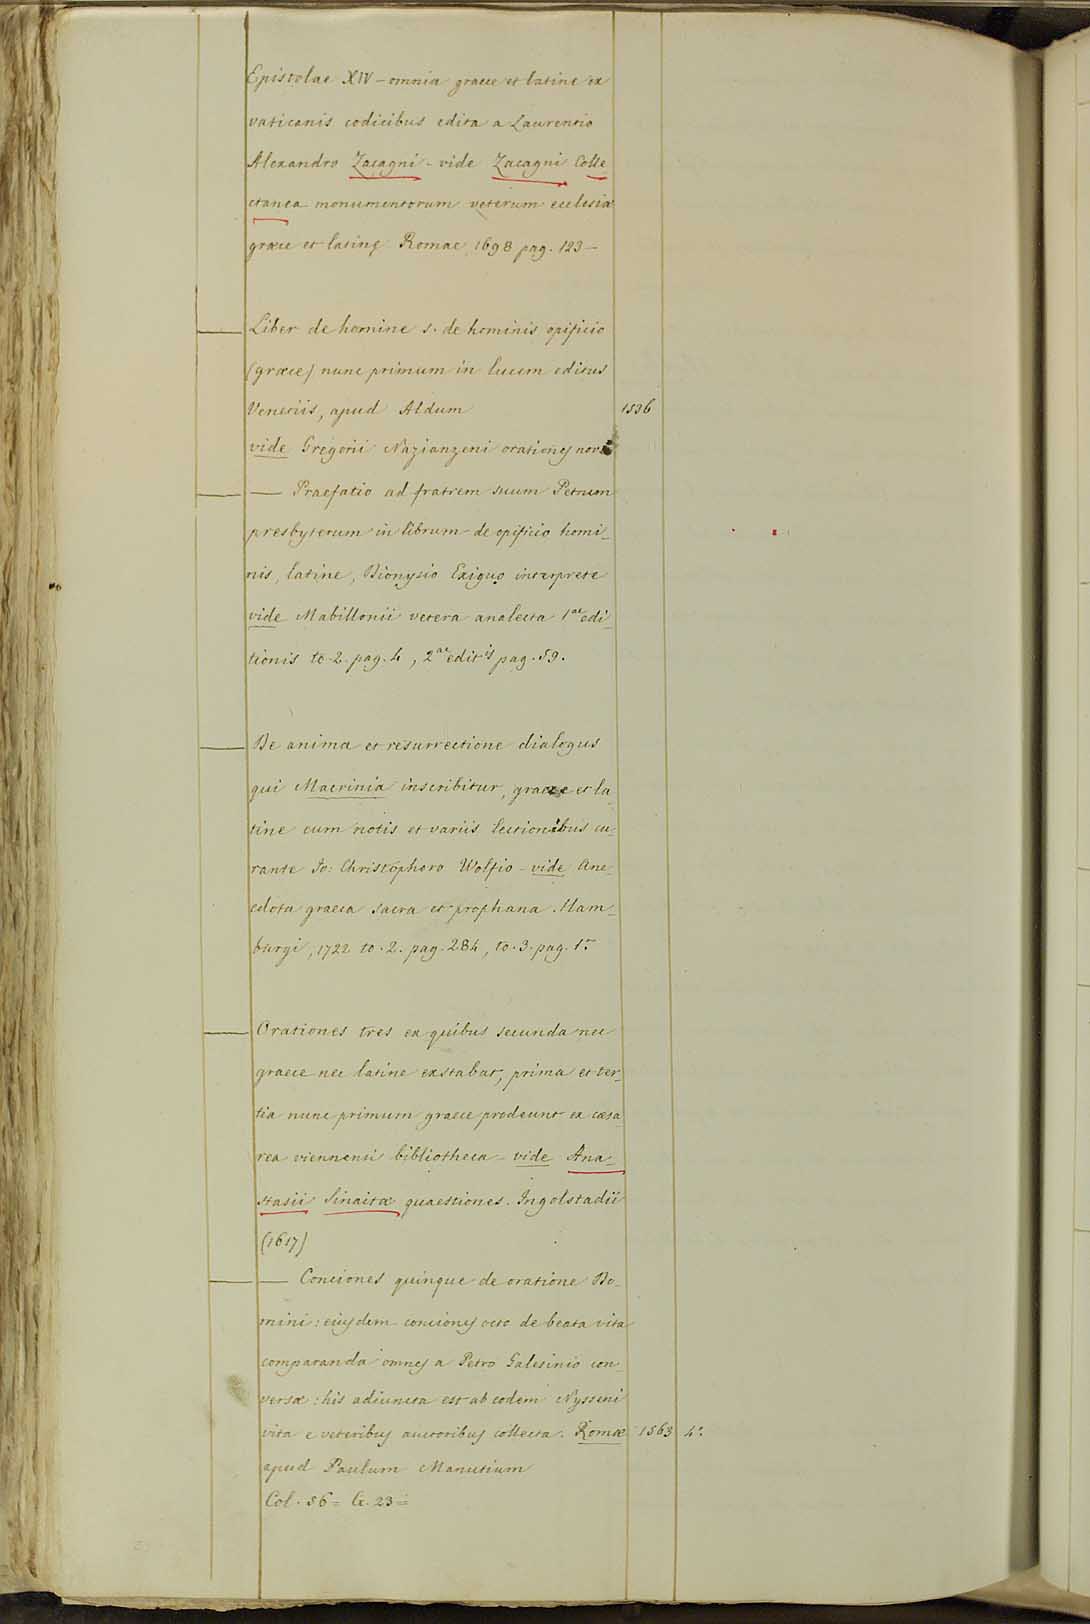 Epistolae XIV – omnia graece et latine ex
vaticanis codicibus edita a Laurentio
Alexandro Zacagni – vide Zacagni Colle
ctanea monumentorum veterum ecclesiæ
græce et latine Romae 1698 pag. 123 –
Liber de homine s. de hominis opificio
(græce) nunc primum in lucem editus
Venetiis, apud Aldum 1536
vide Gregorii Nazianzeni orationes novem
— Praefatio ad fratrem suum Petrum
presbyterum in librum de opificio homi_
nis, latine, Dionysio Exiguo interprete
vide Mabillonii vetera analecta 1ae edi_
tionis to. 2. pag. 4, 2ae editis pag. 59.
De anima et resurrectione dialogus
qui Macrinia inscribitur, graece et la_
tine cum notis et variis lectionibus cu_
rante Jo: Christophoro Wolfio – vide Ane_
cdota graeca sacra et prophana. Ham_
burgi, 1722 to. 2. pag. 284, to. 3. pag. 1.
Orationes tres ex quibus secunda nec
graece nec latine exstabat, prima et ter_
tia nunc primum graece prodeunt ex cæsa_
rea viennensi bibliotheca – vide Ana_
stasii Sinaitæ quaestiones. Ingolstadii
(1617)
— Conciones quinque de oratione Do_
mini: eiusdem conciones octo de beata vita
comparanda omnes a Petro Galesinio con_
versæ: his adiuncta est ab eodem Nysseni
vita e veteribus auctoribus collecta. Romæ 1563 4°.
apud Paulum Manutium
Col. 56 = G. 23 =